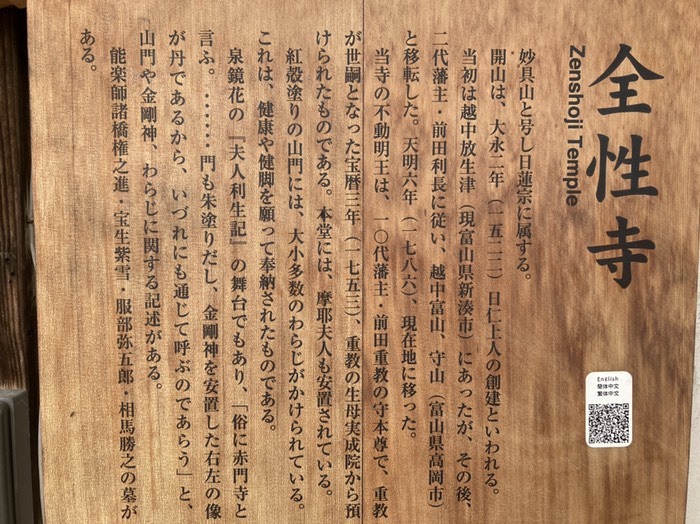 全性寺
Zenshoji Temple
妙具山と号し日蓮宗に属する。
開山は、大永二年（一五二二）日仁上人の創建といわれる。
当初は越中放生津（現富山県新湊市）にあったが、その後、
二代藩主・前田利長に従い、越中富山、守山（富山県高岡市）
と移転した。天明六年（一七八六）、現在地に移った。
当寺の不動明王は、一〇代藩主・前田重教の守本尊で、重教
が世嗣となった宝暦三年（一七五三）、重教の生母実成院から預
けられたものである。本堂には、摩耶夫人も安置されている。
紅殻塗りの山門には、大小多数のわらじがかけられている。
これは、健康や健脚を願って奉納されたものである。
泉鏡花の『夫人利生記』の舞台でもあり、「俗に赤門寺と
言ふ。……門も朱塗りだし、金剛神を安置した右左の像
が丹であるから、いづれにも通じて呼ぶのであらう」と、
山門や金剛神、わらじに関する記述がある。
能楽師諸橋権之進・宝生紫雪・服部弥五郎・相馬勝之の墓が
ある。
English
簡体中文
繁体中文